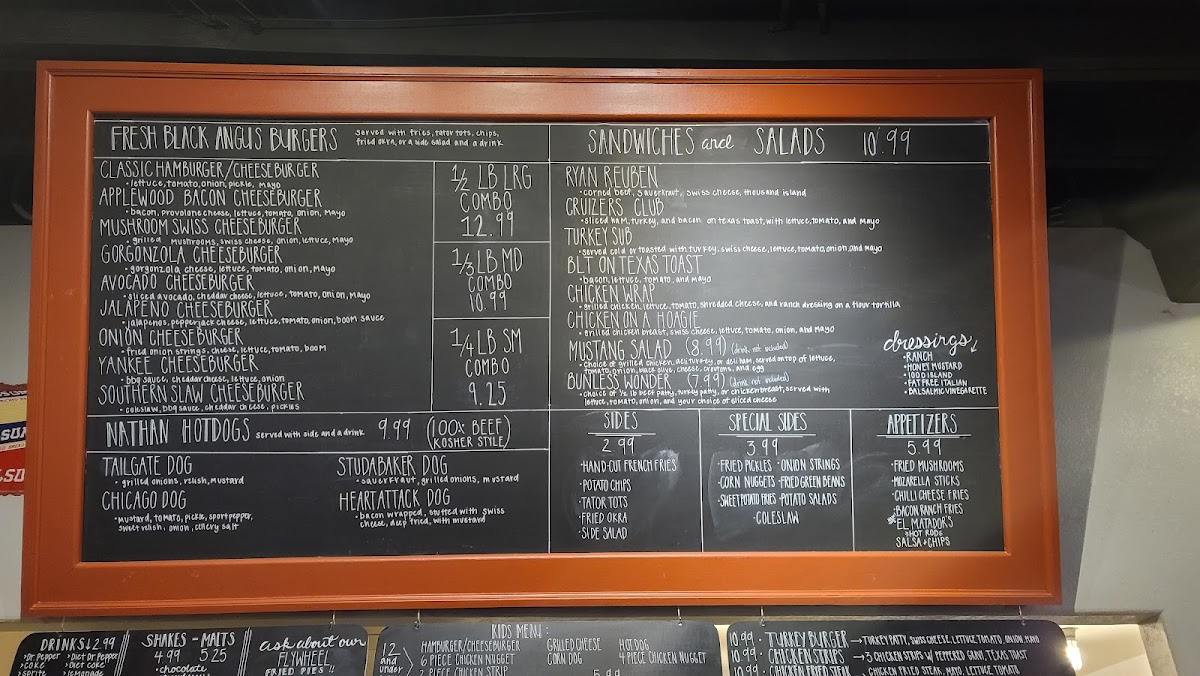 FRESH BLACK ANGUS BURGERS
served with fries, tator tots, chips,
fried okra, or a side salad and a drink
CLASSIC HAMBURGER/CHEESEBURGER
• lettuce, tomato, onion, pickle, mayo
APPLEWOOD BACON CHEESEBURGER
• bacon, provolone cheese, lettuce, tomato, onion, mayo
MUSHROOM SWISS CHEESEBURGER
• grilled mushrooms, swiss cheese, onion, lettuce, mayo
GORGONZOLA CHEESEBURGER
• gorgonzola cheese, lettuce, tomato, onion, mayo
AVOCADO CHEESEBURGER
• sliced avocado, cheddar cheese, lettuce, tomato, onion, mayo
JALAPENO CHEESEBURGER
• jalapenos, pepperjack cheese, lettuce, tomato, onion, boom sauce
ONION CHEESEBURGER
• fried onion strings, cheese, lettuce, tomato, boom
YANKEE CHEESEBURGER
• bbq sauce, cheddar cheese, lettuce, onion
SOUTHERN SLAW CHEESEBURGER
• coleslaw, bbq sauce, cheddar cheese, pickles
1/2 LB LRG
COMBO
12.99
1/3 LB MD
COMBO
10.99
1/4 LB SM
COMBO
9.25
NATHAN HOTDOGS served with side and a drink 9.99 (100% BEEF)
(KOSHER STYLE)
TAILGATE DOG
• grilled onions, relish, mustard
CHICAGO DOG
• mustard, tomato, pickle, sport pepper,
sweet relish, onion, cellery salt
STUDABAKER DOG
• sauerkraut, grilled onions, mustard
HEARTATTACK DOG
• bacon wrapped, stuffed with swiss
cheese, deep fried, with mustard
SANDWICHES and SALADS 10.99
RYAN REUBEN
• corned beef, sauerkraut, swiss cheese, thousand island
CRUIZERS CLUB
• sliced ham, turkey, and bacon on texas toast, with lettuce, tomato, and mayo
TURKEY SUB
• served cold or toasted with turkey, swiss cheese, lettuce, tomato, onion, and mayo
BLT ON TEXAS TOAST
• bacon, lettuce, tomato, and mayo
CHICKEN WRAP
• grilled chicken, lettuce, tomato, shredded cheese, and ranch dressing on a flour tortilla
CHICKEN ON A HOAGIE
• grilled chicken breast, swiss cheese, lettuce, tomato, onion, and mayo
MUSTANG SALAD (8.99) (drink not included)
• choice of grilled chicken, deli turkey, or deli ham, served on top of lettuce,
tomato, onion, black olive, cheese, croutons, and egg
BUNLESS WONDER (7.99) (drink not included)
• choice of 1/2 lb beef patty, turkey patty, or chicken breast, served with
lettuce, tomato, onion, and your choice of sliced cheese
dressings
• RANCH
• HONEY MUSTARD
• 1000 ISLAND
• FAT FREE ITALIAN
• BALSALMIC VINEGARETTE
SIDES
2.99
• HAND-CUT FRENCH FRIES
• POTATO CHIPS
• TATOR TOTS
• FRIED OKRA
• SIDE SALAD
SPECIAL SIDES
3.99
• FRIED PICKLES • ONION STRINGS
• CORN NUGGETS • FRIED GREEN BEANS
• SWEET POTATO FRIES • POTATO SALADS
• COLESLAW
APPETIZERS
5.99
• FRIED MUSHROOMS
• MOZARELLA STICKS
• CHILLI CHEESE FRIES
• BACON RANCH FRIES
EL MATADOR'S
HOT RODS
SALSA + CHIPS
DRINKS 2.99
> Dr. Pepper > Diet Dr. Pepper
> Coke > Diet Coke
> Sprite > lemonade
SHAKES - MALTS
4.99 5.25
• chocolate
ask about our
FLYWHEEL
FRIED PIES!!
KIDS MENU:
12
and
under
HAMBURGER/CHEESEBURGER
6 PIECE CHICKEN NUGGET
2 PIECE CHICKEN STRIP
GRILLED CHEESE
CORN DOG
HOT DOG
4 PIECE CHICKEN NUGGET
5.99
10.99 • TURKEY BURGER → TURKEY PATTY, SWISS CHEESE, LETTUCE TOMATO, ONION MAYO
10.99 • CHICKEN STRIPS → 3 CHICKEN STRIPS W/ PEPPERED GRAVY, TEXAS TOAST
10.99 • CHICKEN FRIED STEAK CHICKEN FRIED STEAK, MAYO, LETTUCE TOMATO